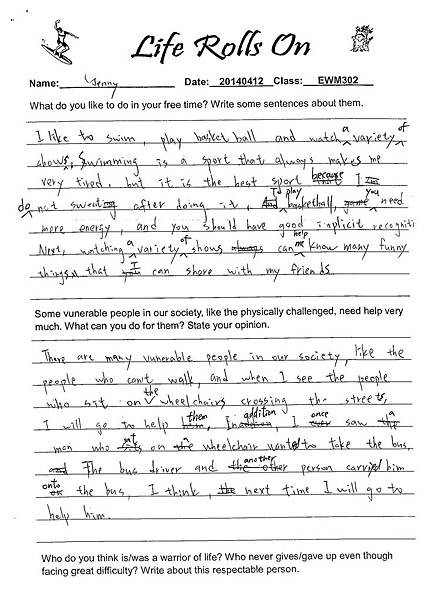 Life Rolls On
Name: Jenny Date: 20140412 Class: EWM302
What do you like to do in your free time? Write some sentences about them.
I like to swim, play basketball and watch a variety of
shows. Swimming is a sport that always makes me
very tired, but it is the best sport because I
do not sweat after doing it. To play basketball, you need
more energy, and you should have good inplicit recogniti
Next, watching a variety of shows can help me know many funny
things that I can share with my friends
Some vunerable people in our society, like the physically challenged, need help very
much. What can you do for them? State your opinion.
There are many vunerable people in our society, like the
people who can't walk, and when I see the people
who sit on the wheelchairs crossing the streets,
I will go to help them, In addition, I once saw a
man who sat on wheelchair wanted to take the bus,
The bus driver and another person carried him
onto the bus, I think, next time I will go to
help him.
Who do you think is/was a warrior of life? Who never gives/gave up even though
facing great difficulty? Write about this respectable person.